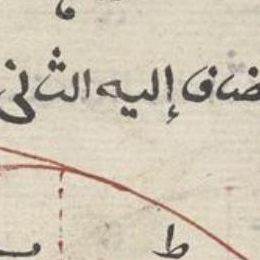 ضاف إليه الثاني
ط